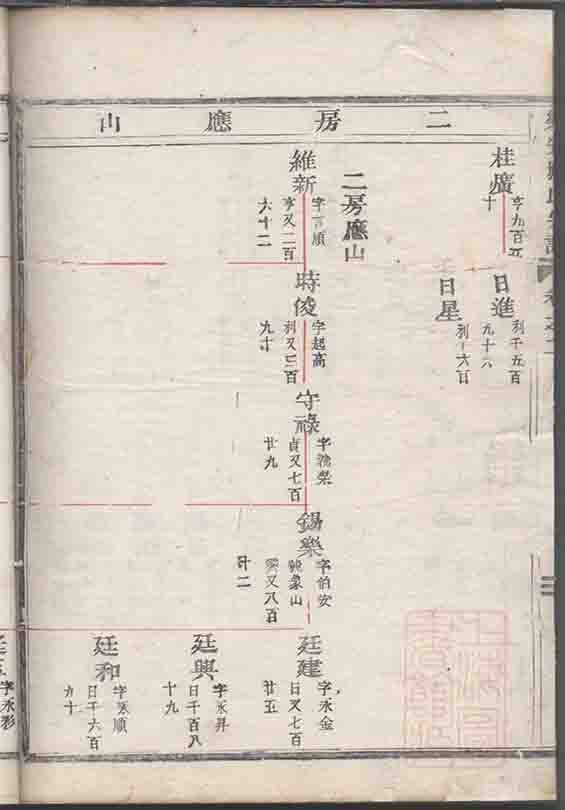 二房應山
桂廣
亨九百五
十
日進
利千五百
九十六
日星
利千六百
二房應山
維新
字言順
亨又二百
六十二
時俊
字起高
利又三百
九十
守祿
貞又七百
廿九
錫樂
字伯安
號象山
又八百
卅二
廷建
字永金
日又七百
廿五
廷興
字永昇
日千百八
十九
廷和
字永順
日千六百
九十
字永彩